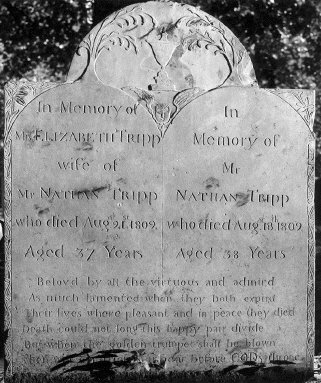 In Memory of
Mrs ELIZABETH Tripp
wife of
Mr NATHAN Tripp
who died Aug. 21st 1809.
Aged 37 Years
In
Memory of
Mr
NATHAN Tripp
who died Aug. 18th 1809
Aged 38 Years
Belov'd by all the virtuous and admired
As much lamented when they both expir'd
Their lives where pleasant and in peace they died
Death could not long this happy pair divide
But when the golden trumpet shall be blown
before GODs throne